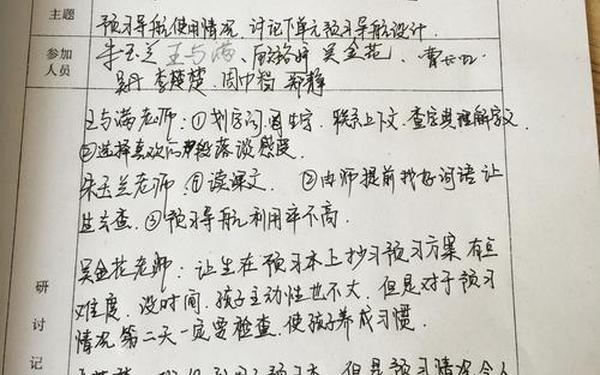 主题
预习导航使用情况,讨论下单元预习导航设计.
参加
人员
朱玉兰 王与满、 吴金花、 曹
吴丹 李楚楚、周中楷 郑静
王与满老师:①划字词,圈生字,联系上下文,查字典理解字义
②选择喜欢的段落谈感受
朱玉兰老师:①读课文 ②由师提前找好词语让
生去查.③预习导航利用率不高.
吴金花老师:让生在预习本上抄习预习方案有点
难度,没时间,孩子主动性也不大,但是对于预习
情况第二天一定要检查,使孩子养成习惯.
研
讨
记
预习本,但是预习情况令人